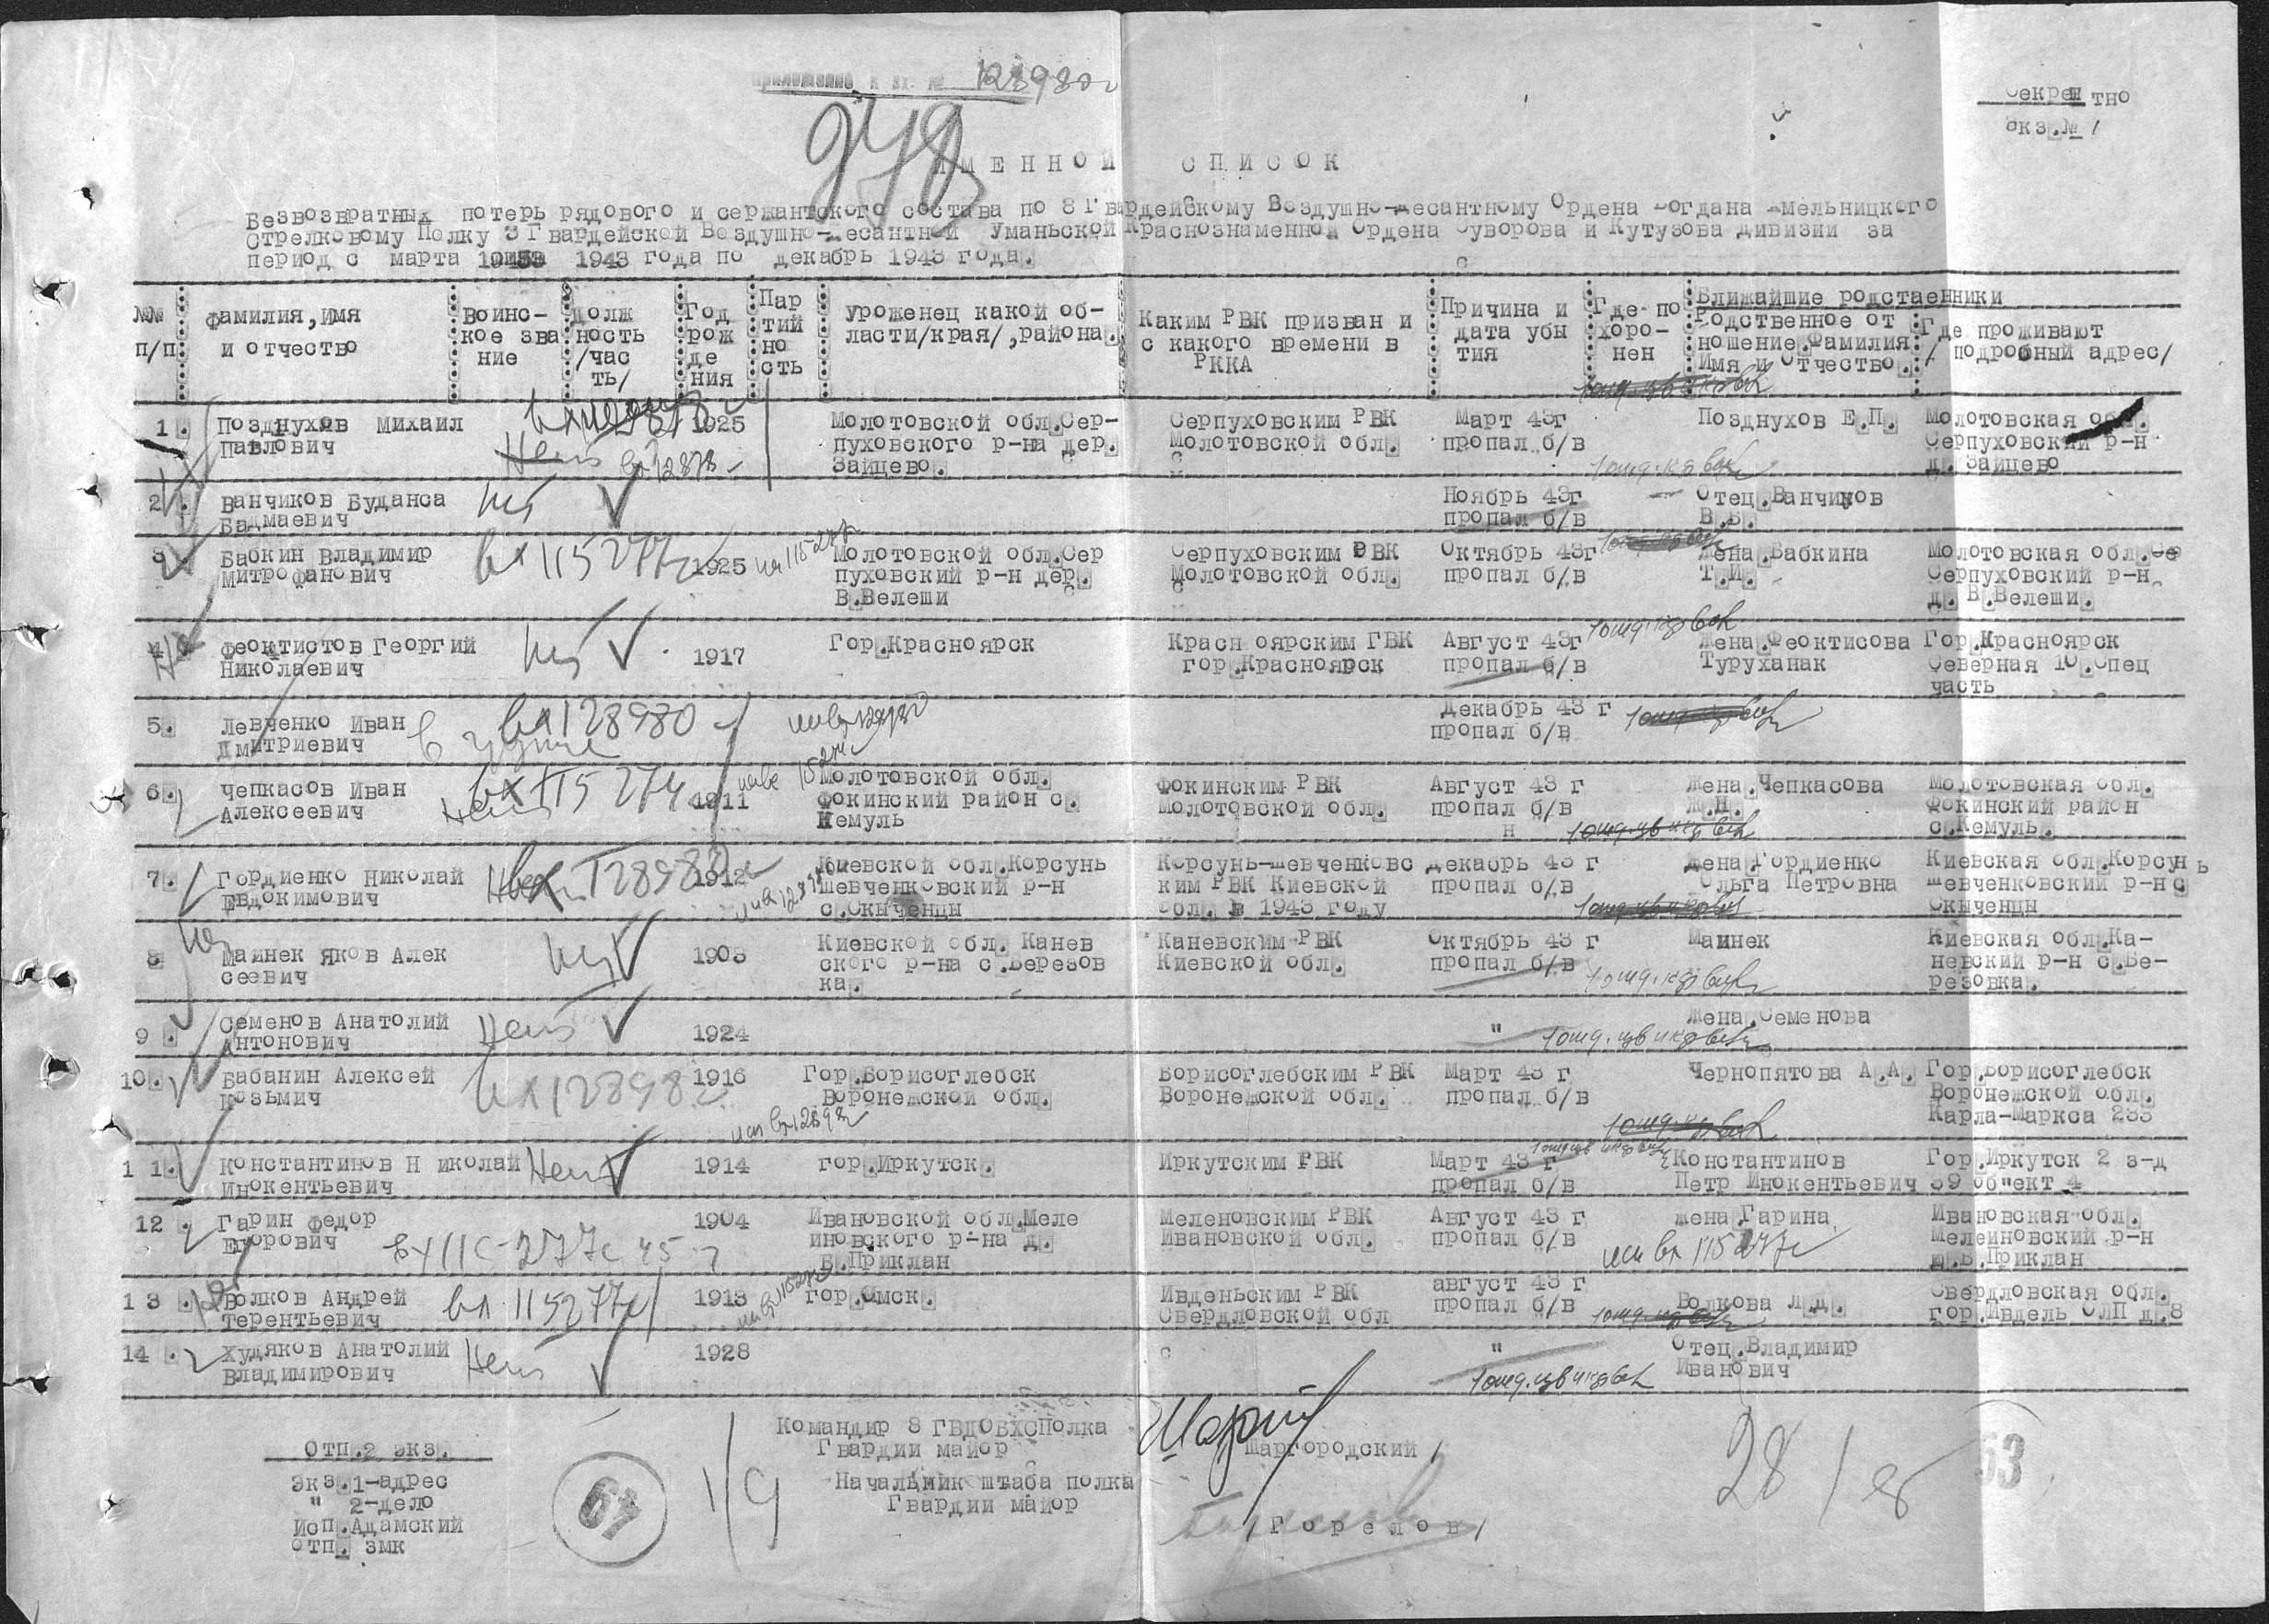 Приложение к вх. № 128980с
948
Секретно
Экз.№ 1
ИМЕННОЙ СПИСОК
Безвозвратных потерь рядового и сержантского состава по 8 Гвардейскому Воздушно-Десантному Ордена Богдана Хмельницкого
Стрелковому Полку 3 Гвардейской Воздушно-Десантной Уманьской Краснознаменной Ордена Суворова и Кутузова дивизии за
период с марта 1943 года по декабрь 1943 года.
№№ п/п
Фамилия,имя и отчество
Воинс-кое зва ние
Долж ность /час ть/
Год рож де ния
Пар тий но сть
Уроженец какой об-ласти/края/,района.
Каким РВК призван и с какого времени в РККА
Причина и дата убы тия
Где по хоро-нен
Ближайшие родстаенники
Родственное от ношение.Фамилия Имя и Отчество.
Где проживают / подробный адрес/
1. Позднухов Михаил 1925 Молотовской обл.Сер- Серпуховским РВК Март 43г Позднухов Е.П. Молотовская обл.
Павлович пуховского р-на дер. Молотовской обл. пропал б/в Серпуховский р-н
Зайцево. д. Зайцево
2. Ванчиков Буданса Нет Ноябрь 43г Отец.Ванчиков
Бадмаевич пропал б/в В.Б.
3 Бабкин Владимир вх 115277с 1925 Молотовской обл.Сер Серпуховским РВК Октябрь 43г Жена.Бабкина Молотовская обл.Се
Митрофанович пуховский р-н дер. Молотовской обл. пропал б/в Т.И. Серпуховский р-н
В.Велеши д. В.Велеши.
4 Феоктистов Георгий Нет 1917 Гор.Красноярск Красноярским ГВК Август 43г Жена.Феоктисова Гор.Красноярск
Николаевич гор.Красноярск пропал б/в Туруханак Северная 10.Спец
часть
5. Левченко Иван вх128980 Декабрь 43 г
Дмитриевич пропал б/в
6. Чепкасов Иван 1911 Молотовской обл. Фокинским РВК Август 43 г Жена.Чепкасова Молотовская обл.
Алексеевич Фокинский район с. Молотовской обл. пропал б/в Ж.Н. Фокинский район
Кемуль с.Кемуль.
7. Гордиенко Николай 1912 Киевской обл.Корсунь Корсунь-Шевченковс Декабрь 43 г Жена.Гордиенко Киевская обл.Корсунь
Евдокимович Шевченковский р-н ким РВК Киевской пропал б/в Ольга Петровна Шевченковский р-н с
с.Скыченцы обл. в 1943 году Скыченцы
8 Маинек Яков Алек Нет 1903 Киевской обл. Канев Каневским РВК Октябрь 43 г Маинек Киевская обл.Ка-
сеевич ского р-на с.Березов Киевской обл. пропал б/в невский р-н с.Бе-
ка. резовка.
9 . Семенов Анатолий Нет 1924 " Жена.Семенова
Антонович
10. Бабанин Алексей вх12898с 1916 Гор.Борисоглебск Борисоглебским РВК Март 43 г Чернопятова А.А. Гор.Борисоглебск
Козьмич Воронежской обл. Воронежской обл. пропал б/в Воронежской обл.
Карла-Маркса 233
11. Константинов Николай Нет 1914 гор.Иркутск. Иркутским РВК Март 43 г Константинов Гор.Иркутск 2 з-д
Инокентьевич пропал б/в Петр Инокентьевич 39 об"ект 4
12 . Гарин Федор 1904 Ивановской обл.Меле Меленовским РВК Август 43 г жена Гарина Ивановская обл.
Егорович иновского р-на д. Ивановской обл. пропал б/в Мелеиновский р-н
В.Приклан д.В.Приклан
13 . Волков Андрей вх 115277с 1913 гор.Омск. Ивденьским РВК август 43 г Волкова Л.Д. Свердловская обл.
Терентьевич Свердловской обл пропал б/в гор.Ивдель ОЛП д.8
14 . Худяков Анатолий Нет 1928 " Отец.Владимир
Владимирович Иванович
Отп.2 экз.
Экз.1-адрес
" 2-дело
Исп.Адамский
отп. змк
67
1/9
Командир 8 ГВДОБХСПолка
Гвардии майор
Шаргородский /
Начальник штаба полка
Гвардии майор
/Горелов/
28
53